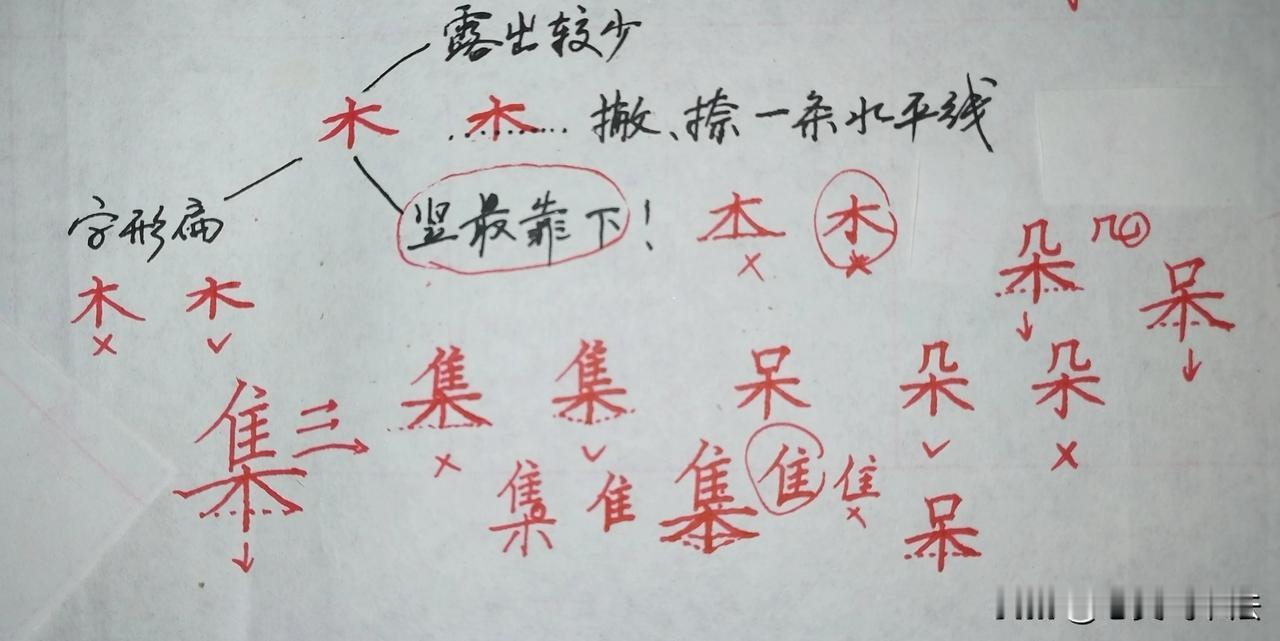 露出较少
木 木 撇、捺一条水平线
字形扁 竖最靠下! 木 × 木 × 朵 几 呆
木 × 木 ✓
集 集 × 集 ✓ 呆 朵 ✓ 朵 ×
集 隹 集 隹 隹 × 呆